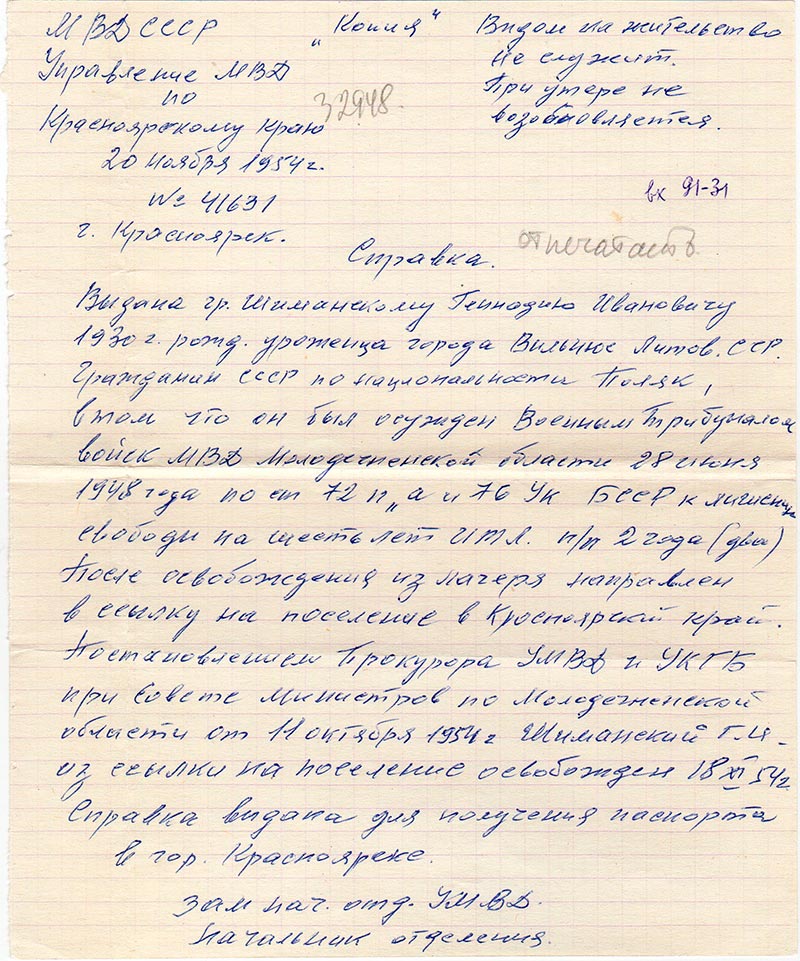 МВД СССР
„Копия“
Видом на жительство
не служит.
При утере не
возобновляется.
Управление МВД
по
Красноярскому Краю
32948.
20 ноября 1954 г.
№ 41631
г. Красноярск.
вх 91-31
отпечатать
Справка.
Выдана гр. Шиманскому Геннадию Ивановичу
1930 г. рожд. уроженца города Вильнюс Литов. ССР.
Гражданин СССР по национальности Поляк,
в том что он был осужден Военным Трибуналом
войск МВД Молодечненской области 28 июня
1948 года по ст 72 п „а и 76 УК БССР к лишению
свободы на шесть лет ИТЛ. п/п 2 года (два)
После освобождения из лагеря направлен
в ссылку на поселение в Красноярский край.
Постановлением Прокурора УМВД и УКГБ
при Совете Министров по Молодечненской
области от 11 октября 1954 г Шиманский Г.И-
из ссылки на поселение освобожден 18 XI 54 г.
Справка выдана для получения паспорта
в гор. Красноярске.
Зам нач. отд. УМВД.
Начальник отделения.